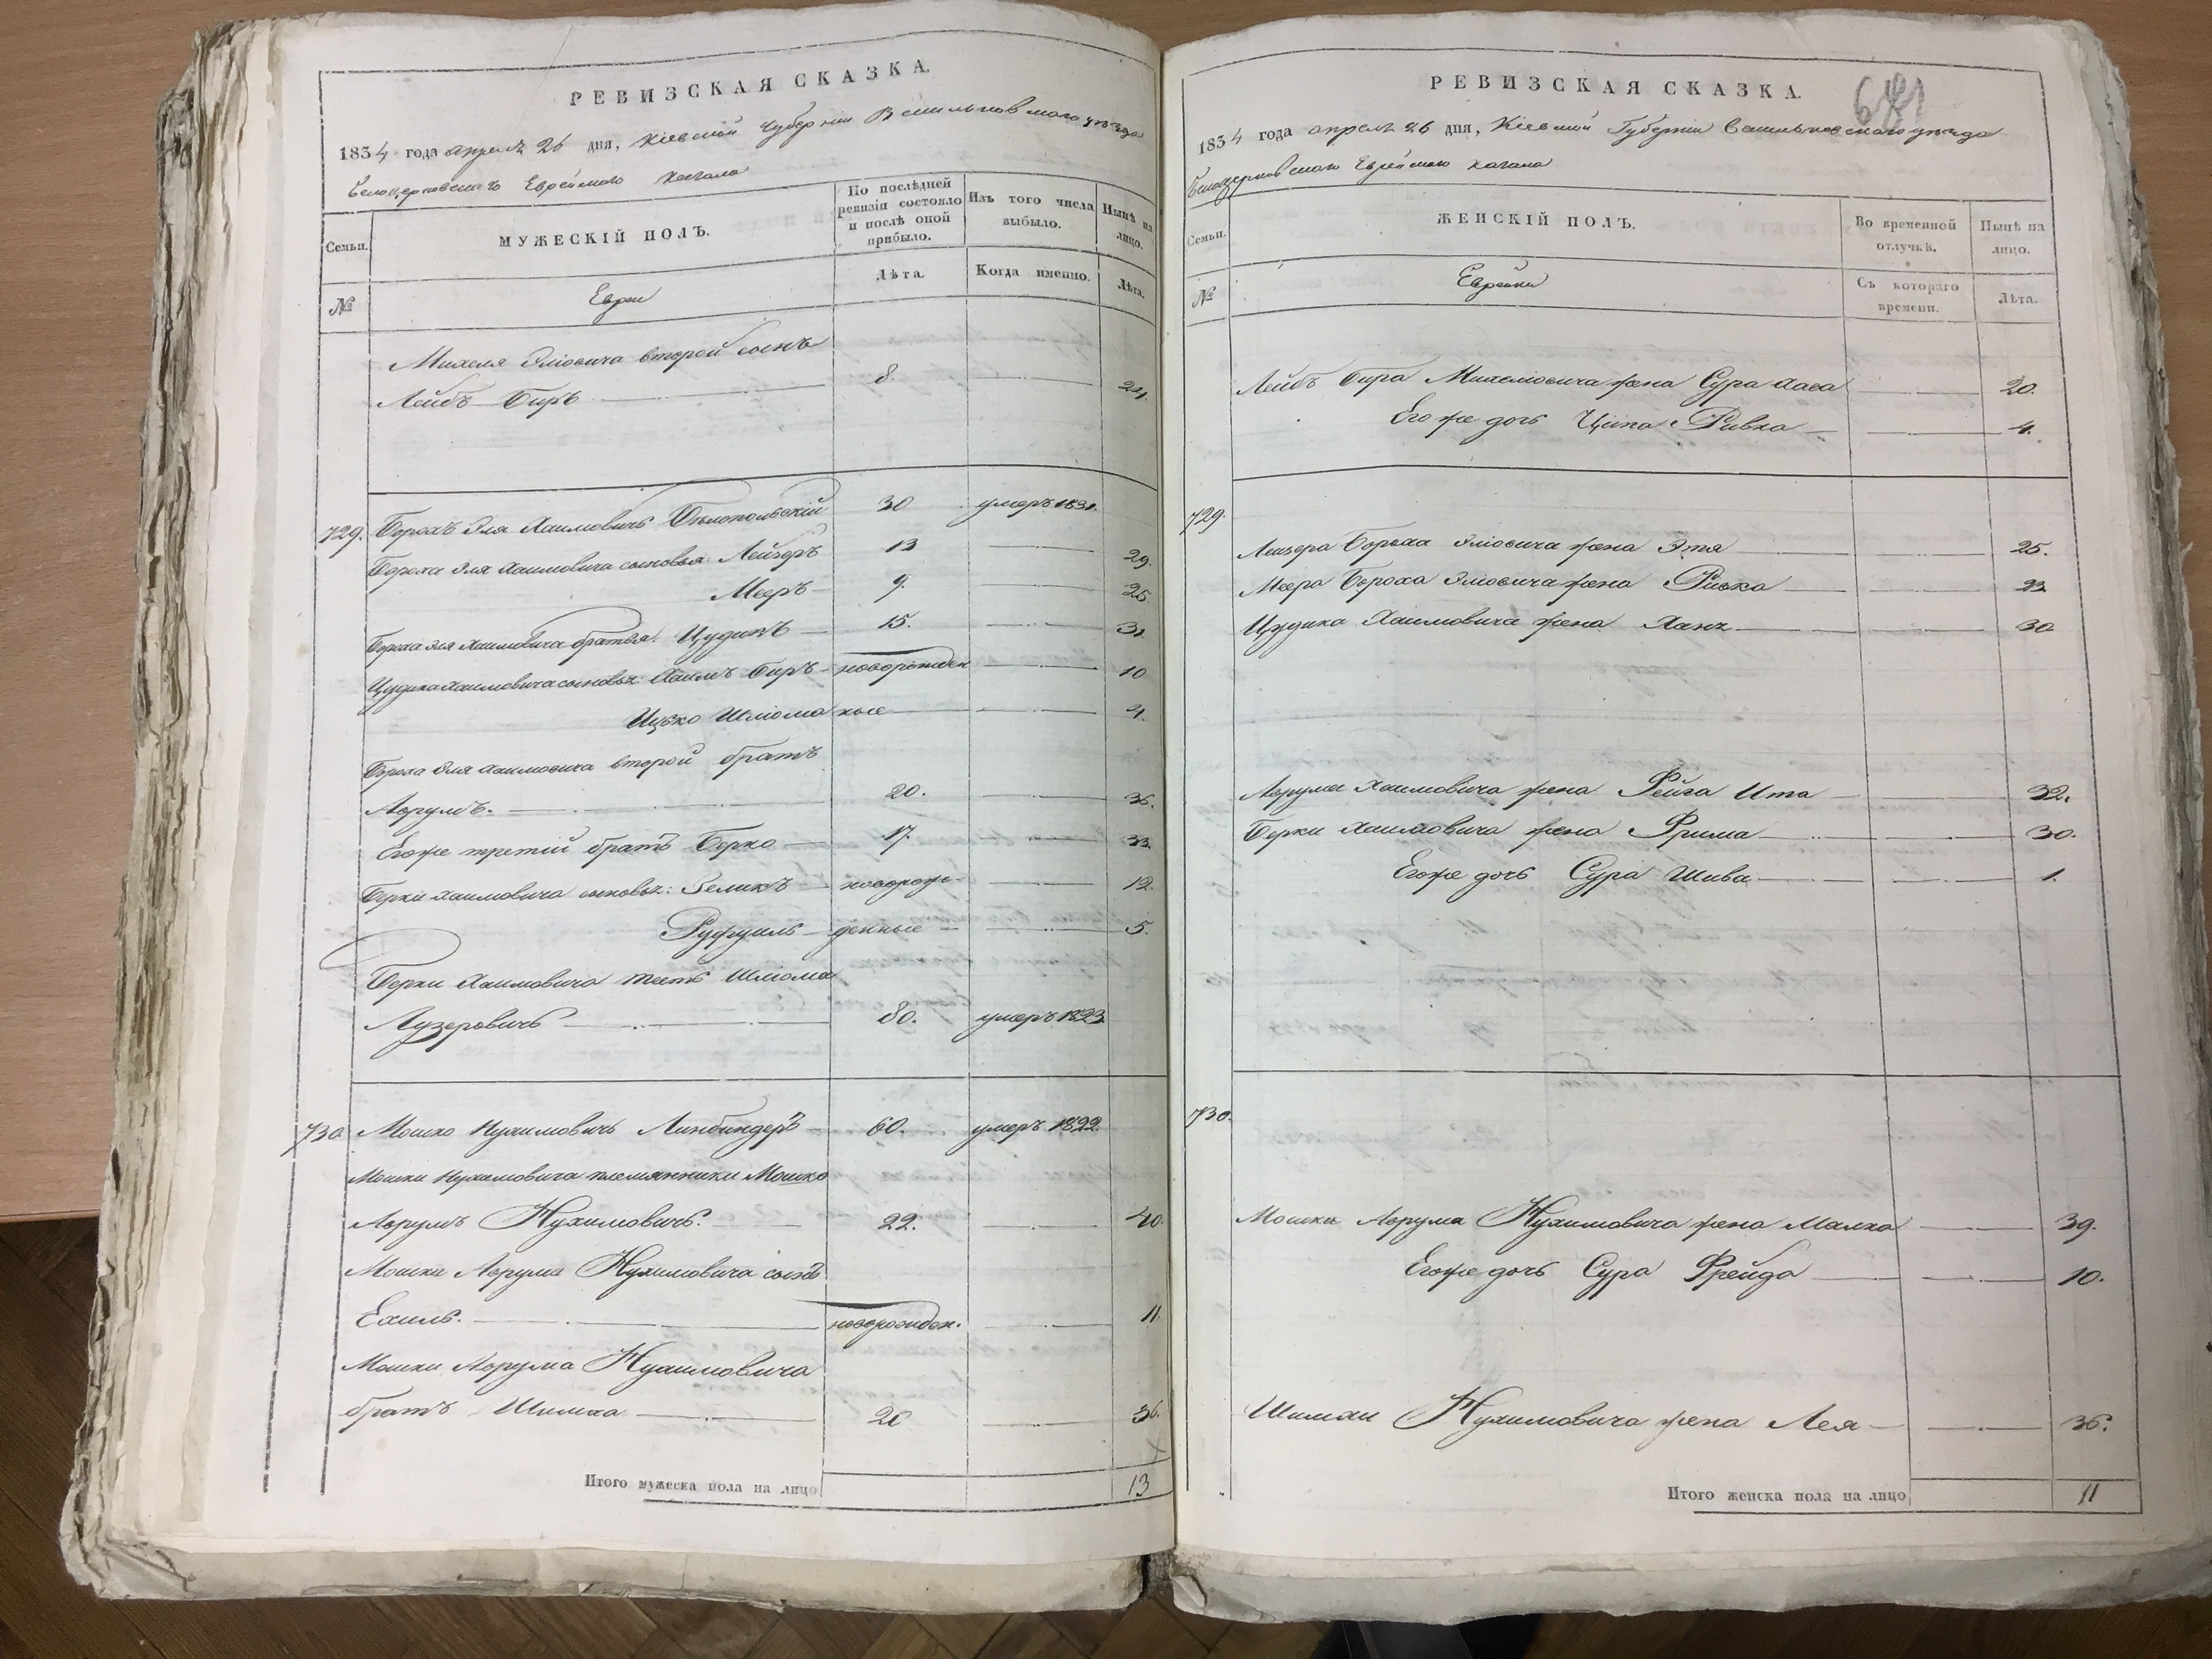 РЕВИЗСКАЯ СКАЗКА.
1834 года апреля 26 дня, Кіевской Губерніи Васильковского уезда
Белоцерковского Еврейского Кагала
Семьи.
МУЖЕСКІЙ ПОЛЪ.
По послѣдней ревизіи состояло и послѣ оной прибыло.
Изъ того числа выбыло.
Нынѣ на лицо.
№
Евреи
Лѣта.
Когда именно.
Лѣта.
Михеля Эліовича второй сынъ
Лейбъ Биръ 8. 24.
729. Борохъ Эля Хаимовичъ Бѣлопольскій 30 умеръ 1831.
Бороха Эля Хаимовича сыновья: Лейзеръ 13 29.
Мееръ 9. 25.
Бороха Эля Хаимовича братья: Цудикъ 15. 31.
Цудика Хаимовича сыновья: Хаимъ Биръ новорожден 10
Ицко Шліома ные 4.
Бороха Эля Хаимовича второй братъ
Аврумъ. 20. 36.
Его же третій братъ Берко 17. 33.
Берки Хаимовича сыновья: Зеликъ новорож- 12.
Руфуиль денные 5.
Берки Хаимовича тесть Шліома
Лузеровичъ 80. умеръ 1823
730 Мошко Нухимовичъ Линбиндеръ 60. умеръ 1822.
Мошки Нухимовича племянники Мошко
Аврумъ Нухимовичъ. 22. 40.
Мошки Аврума Нухимовича сынъ
Ехиль. новорожден. 11
Мошки Аврума Нухимовича
братъ Шимха 20 36.
Итого мужеска пола на лицо 13
РЕВИЗСКАЯ СКАЗКА.
1834 года апреля 26 дня, Кіевской Губерніи Васильковского уезда
Белоцерковского Еврейского Кагала
Семьи.
ЖЕНСКІЙ ПОЛЪ.
Во временной отлучкѣ.
Нынѣ на лицо.
№
Еврейки
Съ котораго времени.
Лѣта.
Лейбъ Бира Михеліовича жена Сура Хава 20.
Его же дочь Ципа Ривка 4.
729.
Лейзера Бороха Эліовича жена Этя 25.
Меера Бороха Эліовича жена Ривка 23
Цудика Хаимовича жена Хана 30
Аврума Хаимовича жена Фейга Ита 32.
Берки Хаимовича жена Фрима 30.
Его же дочь Сура Шива 1.
730.
Мошки Аврума Нухимовича жена Малка 39.
Его же дочь Сура Фрейда 10.
Шимхи Нухимовича жена Лея 36.
Итого женска пола на лицо 11